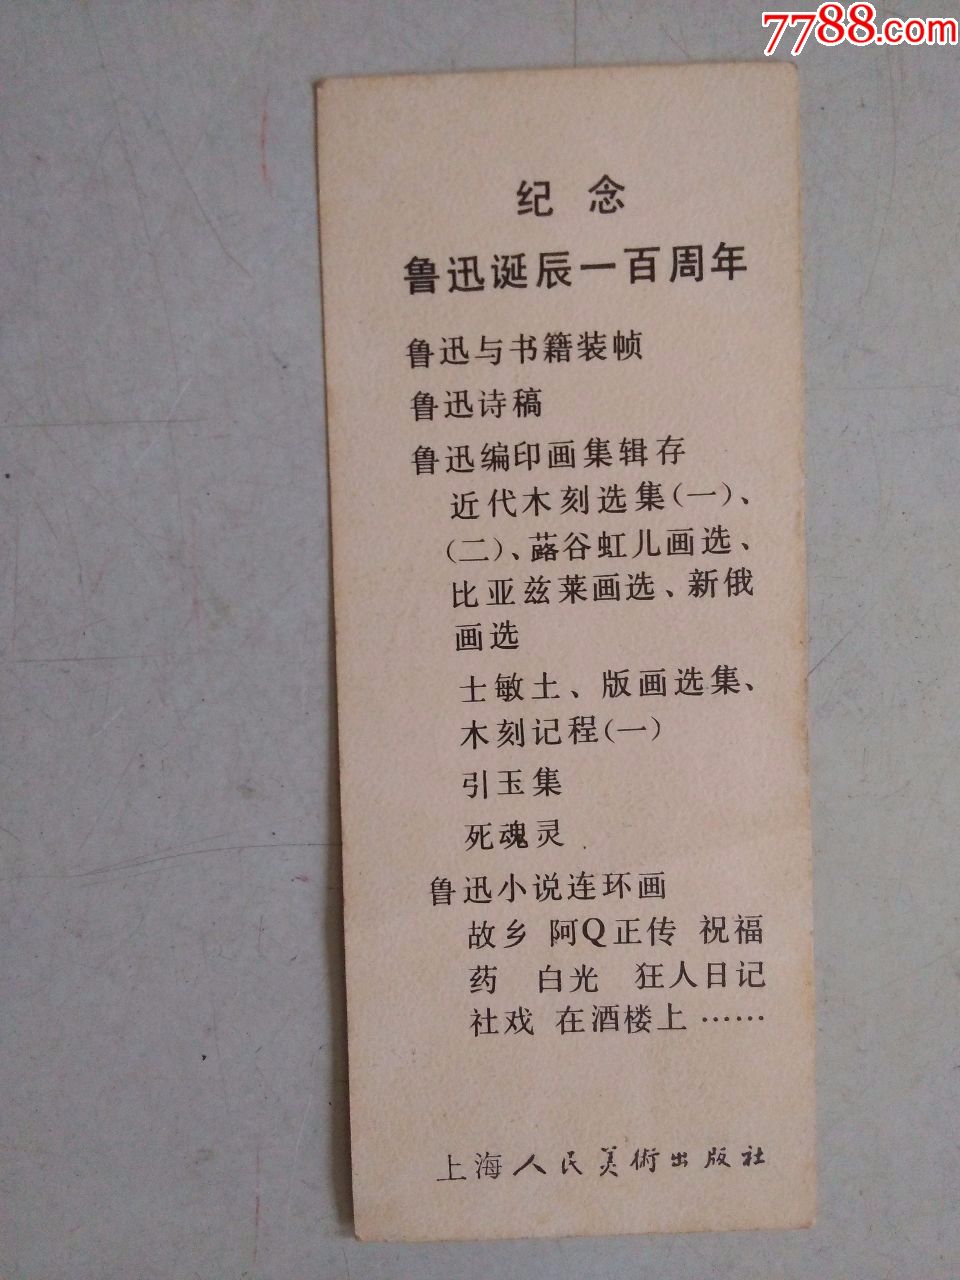 7788.com
纪念
鲁迅诞辰一百周年
鲁迅与书籍装帧
鲁迅诗稿
鲁迅编印画集辑存
近代木刻选集(一)、
(二)、蕗谷虹儿画选、
比亚兹莱画选、新俄
画选
士敏土、版画选集、
木刻记程(一)
引玉集
死魂灵
鲁迅小说连环画
故乡 阿Q正传 祝福
药 白光 狂人日记
社戏 在酒楼上 ……
上海人民美術出版社